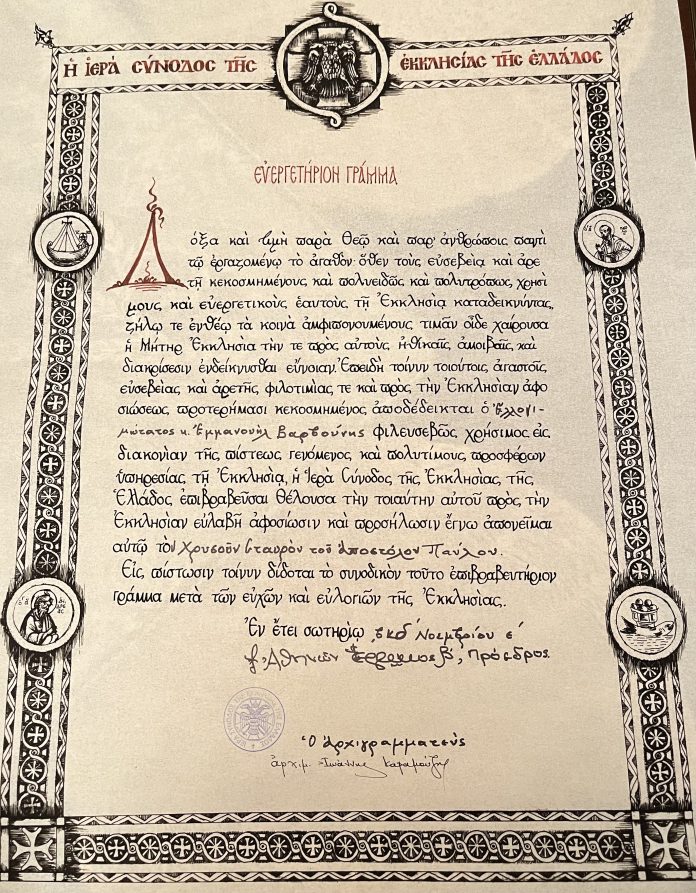 Ἡ ἹΕΡΆ ϹΎΝΟΔΟϹ ΤΗ͂Ϲ ἘΚΚΛΗϹΊΑϹ ΤΗ͂Ϲ ἙΛΛΆΔΟϹ
ΕΥ̓ΕΡΓΕΤΉΡΙΟΝ ΓΡΆΜΜΑ
Δόξα καὶ τιμὴ παρὰ Θεῷ καὶ παρ' ἀνθρώποις παντὶ
τῷ ἐργαζομένῳ τὸ ἀγαθόν· ὅθεν τοὺς εὐσεβείᾳ καὶ ἀρε
τῇ κεκοσμημένους καὶ πολυειδῶς καὶ πολυτρόπως χρησί
μους καὶ εὐεργετικοὺς ἑαυτοὺς τῇ Ἐκκλησίᾳ καταδεικνύντας,
ζήλῳ τε ἐνθέῳ τὰ κοινὰ ἀμφιπονουμένους τιμᾶν οἶδε χαίρουσα
ἡ Μήτηρ Ἐκκλησία τήν τε πρὸς αὐτοὺς ἠθικαῖς ἀμοιβαῖς καὶ
διακρίσεσιν ἐνδείκνυσθαι εὔνοιαν. Ἐπειδὴ τοίνυν τοιούτοις ἀγαστοῖς
εὐσεβείας καὶ ἀρετῆς φιλοτιμίας τε καὶ πρὸς τὴν Ἐκκλησίαν ἀφο
σιώσεως προτερήμασι κεκοσμημένος ἀποδέδεικται ὁ Ἐλλογι-
μώτατος κ. Ἐμμανουὴλ Βαρβούνης φιλευσεβῶς χρήσιμος εἰς
διακονίαν τῆς πίστεως γενόμενος καὶ πολυτίμους προσφέρων
ὑπηρεσίας τῇ Ἐκκλησίᾳ, ἡ Ἱερὰ Σύνοδος τῆς Ἐκκλησίας τῆς
Ἑλλάδος ἐπιβραβεῦσαι θέλουσα τὴν τοιαύτην αὐτοῦ πρὸς τὴν
Ἐκκλησίαν εὐλαβῆ ἀφοσίωσιν καὶ προσήλωσιν ἔγνω ἀπονεῖμαι
αὐτῷ τὸν Χρυσοῦν Σταυρὸν τοῦ Ἀποστόλου Παύλου.
Εἰς πίστωσιν τοίνυν δίδοται τὸ συνοδικὸν τοῦτο ἐπιβραβευτήριον
γράμμα μετὰ τῶν εὐχῶν καὶ εὐλογιῶν τῆς Ἐκκλησίας.
Ἐν ἔτει σωτηρίῳ ͵βκδ' Νοεμβρίου ε'
† Ἀθηνῶν Ἱερώνυμος Β', Πρόεδρος
Ὁ Ἀρχιγραμματεὺς
ἀρχιμ. Ἰωάννης Καραμούζης